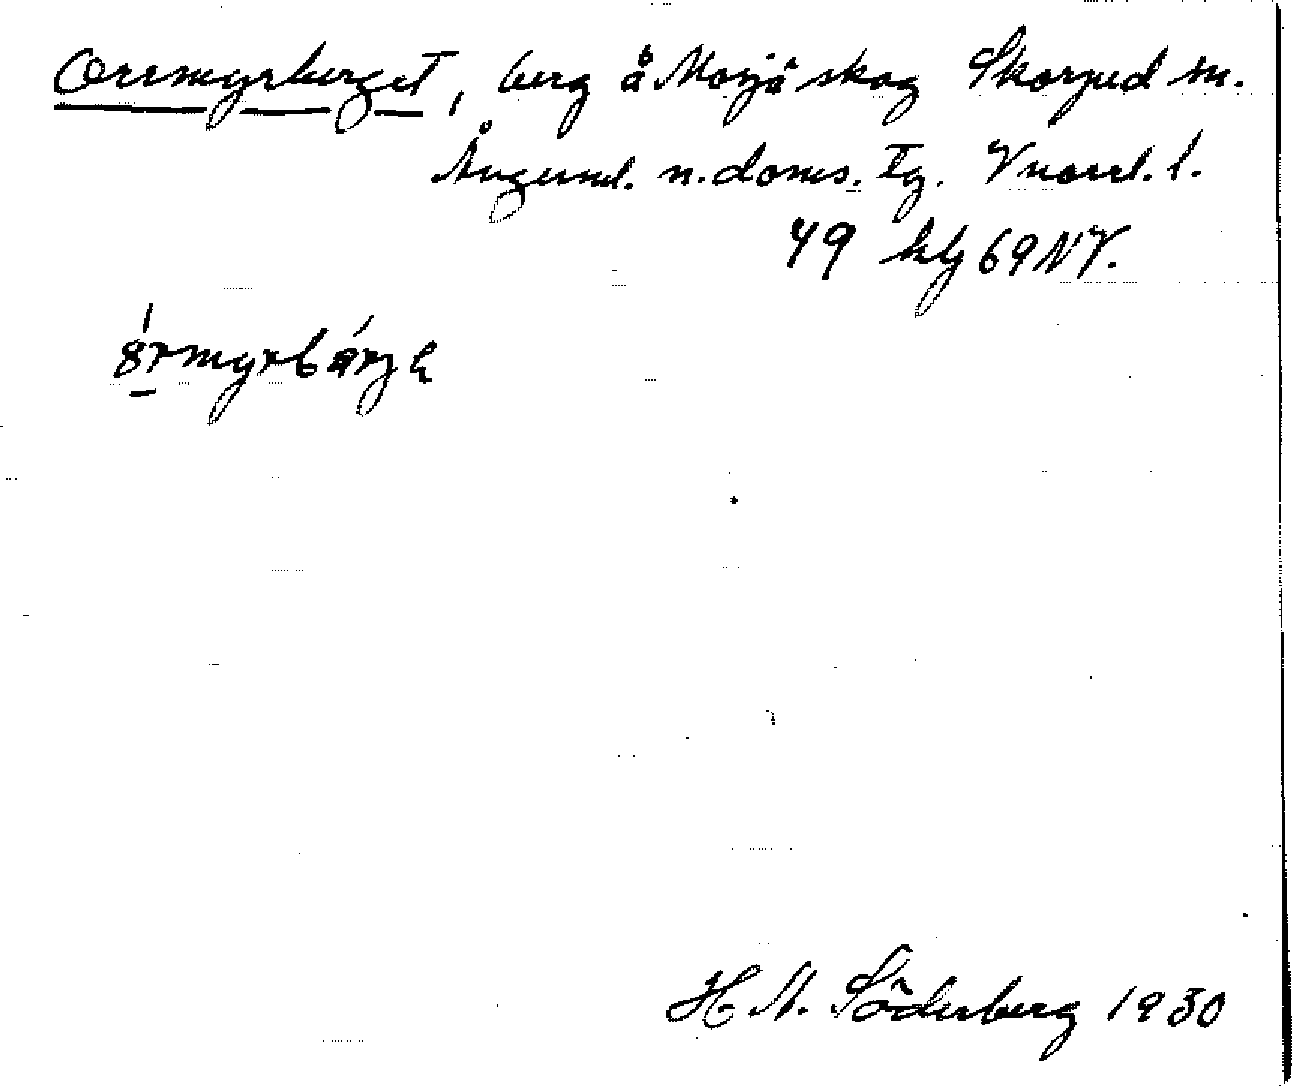 Orrmyrberget, berg å Mosjö skog Skorped sn.
Ångerml. n. doms. Tg. Vnorrl. l.
49 klj 69 NV.
H N. Söderberg 1930